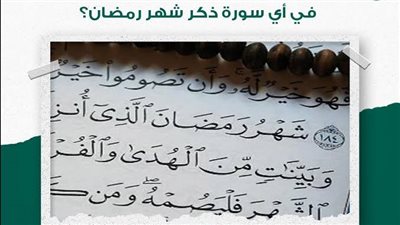 في أي سورة ذكر شهر رمضان؟
فَهُوَ خَيْرٌ لَّهُۥ ۚ وَأَن تَصُومُوا۟ خَيْرٌ
١٨٤ شَهْرُ رَمَضَانَ ٱلَّذِىٓ أُنزِ
وَبَيِّنَـٰتٍ مِّنَ ٱلْهُدَىٰ وَٱلْفُرْ
ٱلشَّهْرَ فَلْيَصُمْهُ ۖ وَمَن كَ